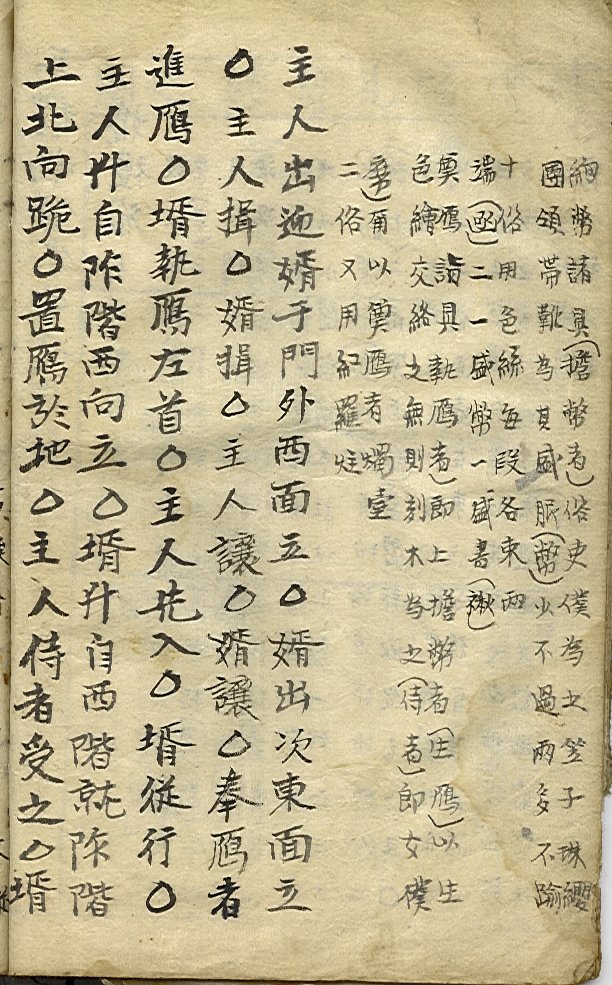 納幣諸具(擔幣者)俗吏僕為之笠子珠纓
團領帶靴為其盛服(幣)少不過兩多不踰
十俗用色絲每段各束兩
端(函)二一盛幣一盛書(袱)
奠鴈諸具執鴈者即上擔幣者(生鴈)以生
色繒交絡之無則刻木為之(侍者)即女僕
以奠鴈者燭臺
二俗又用紅羅炷
主人出迎婿于門外西面立○婿出次東面立
○主人揖○婿揖○主人讓○婿讓○奉鴈者
進鴈○壻執鴈左首○主人先入○壻從行○
主人升自阼階西向立○壻升自西階就阼階
上北向跪○置鴈於地○主人侍者受之○壻